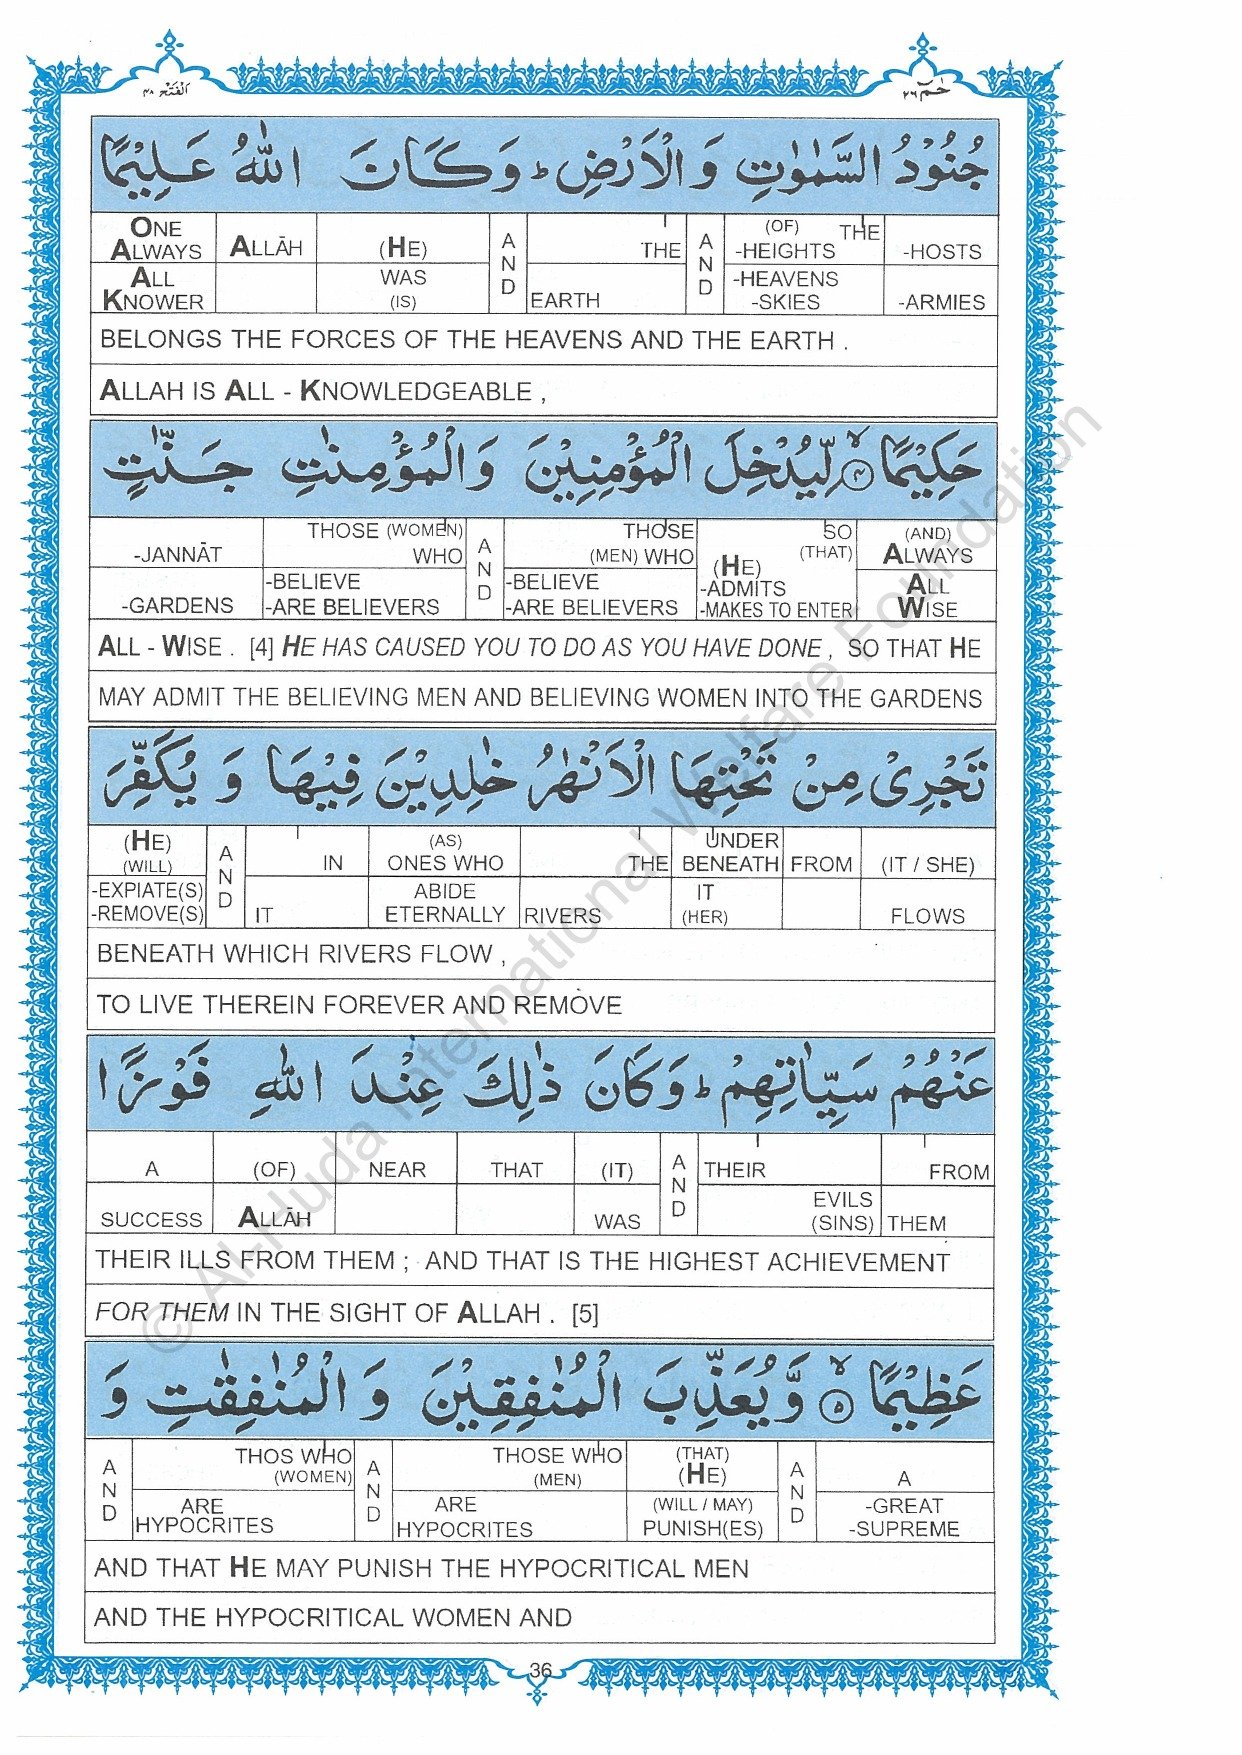 الْفَتْح ٤٨
حٰمٓ ٢٦
جُنُوْدُ السَّمٰوٰتِ وَ الْاَرْضِ ؕ وَ كَانَ اللّٰهُ عَلِيْمًا
ONE ALWAYS ALLĀH (HE) AND THE AND (OF) THE -HEIGHTS -HOSTS
ALL KNOWER WAS (IS) EARTH -HEAVENS -SKIES -ARMIES
BELONGS THE FORCES OF THE HEAVENS AND THE EARTH .
ALLAH IS ALL - KNOWLEDGEABLE ,
حَكِيْمًا ۙ﴿۴﴾ لِّيُدْخِلَ الْمُؤْمِنِيْنَ وَ الْمُؤْمِنٰتِ جَنّٰتٍ
-JANNĀT THOSE (WOMEN) WHO AND THOSE (MEN) WHO SO (THAT) (AND) ALWAYS
-GARDENS -BELIEVE -ARE BELIEVERS -BELIEVE -ARE BELIEVERS (HE) -ADMITS -MAKES TO ENTER ALL WISE
ALL - WISE . [4] HE HAS CAUSED YOU TO DO AS YOU HAVE DONE , SO THAT HE
MAY ADMIT THE BELIEVING MEN AND BELIEVING WOMEN INTO THE GARDENS
تَجْرِيْ مِنْ تَحْتِهَا الْاَنْهٰرُ خٰلِدِيْنَ فِيْهَا وَ يُكَفِّرَ
(HE) (WILL) AND IN (AS) ONES WHO THE UNDER BENEATH FROM (IT / SHE)
-EXPIATE(S) -REMOVE(S) IT ABIDE ETERNALLY RIVERS IT (HER) FLOWS
BENEATH WHICH RIVERS FLOW ,
TO LIVE THEREIN FOREVER AND REMOVE
عَنْهُمْ سَيِّاٰتِهِمْ ؕ وَ كَانَ ذٰلِكَ عِنْدَ اللّٰهِ فَوْزًا
A (OF) NEAR THAT (IT) AND THEIR FROM
SUCCESS ALLĀH WAS EVILS (SINS) THEM
THEIR ILLS FROM THEM ; AND THAT IS THE HIGHEST ACHIEVEMENT
FOR THEM IN THE SIGHT OF ALLAH . [5]
عَظِيْمًا ۙ﴿۵﴾ وَّ يُعَذِّبَ الْمُنٰفِقِيْنَ وَ الْمُنٰفِقٰتِ وَ
AND THOS WHO (WOMEN) AND THOSE WHO (MEN) (THAT) (HE) AND A
ARE HYPOCRITES ARE HYPOCRITES (WILL / MAY) PUNISH(ES) -GREAT -SUPREME
AND THAT HE MAY PUNISH THE HYPOCRITICAL MEN
AND THE HYPOCRITICAL WOMEN AND
36
© Al-Huda International Welfare Foundation